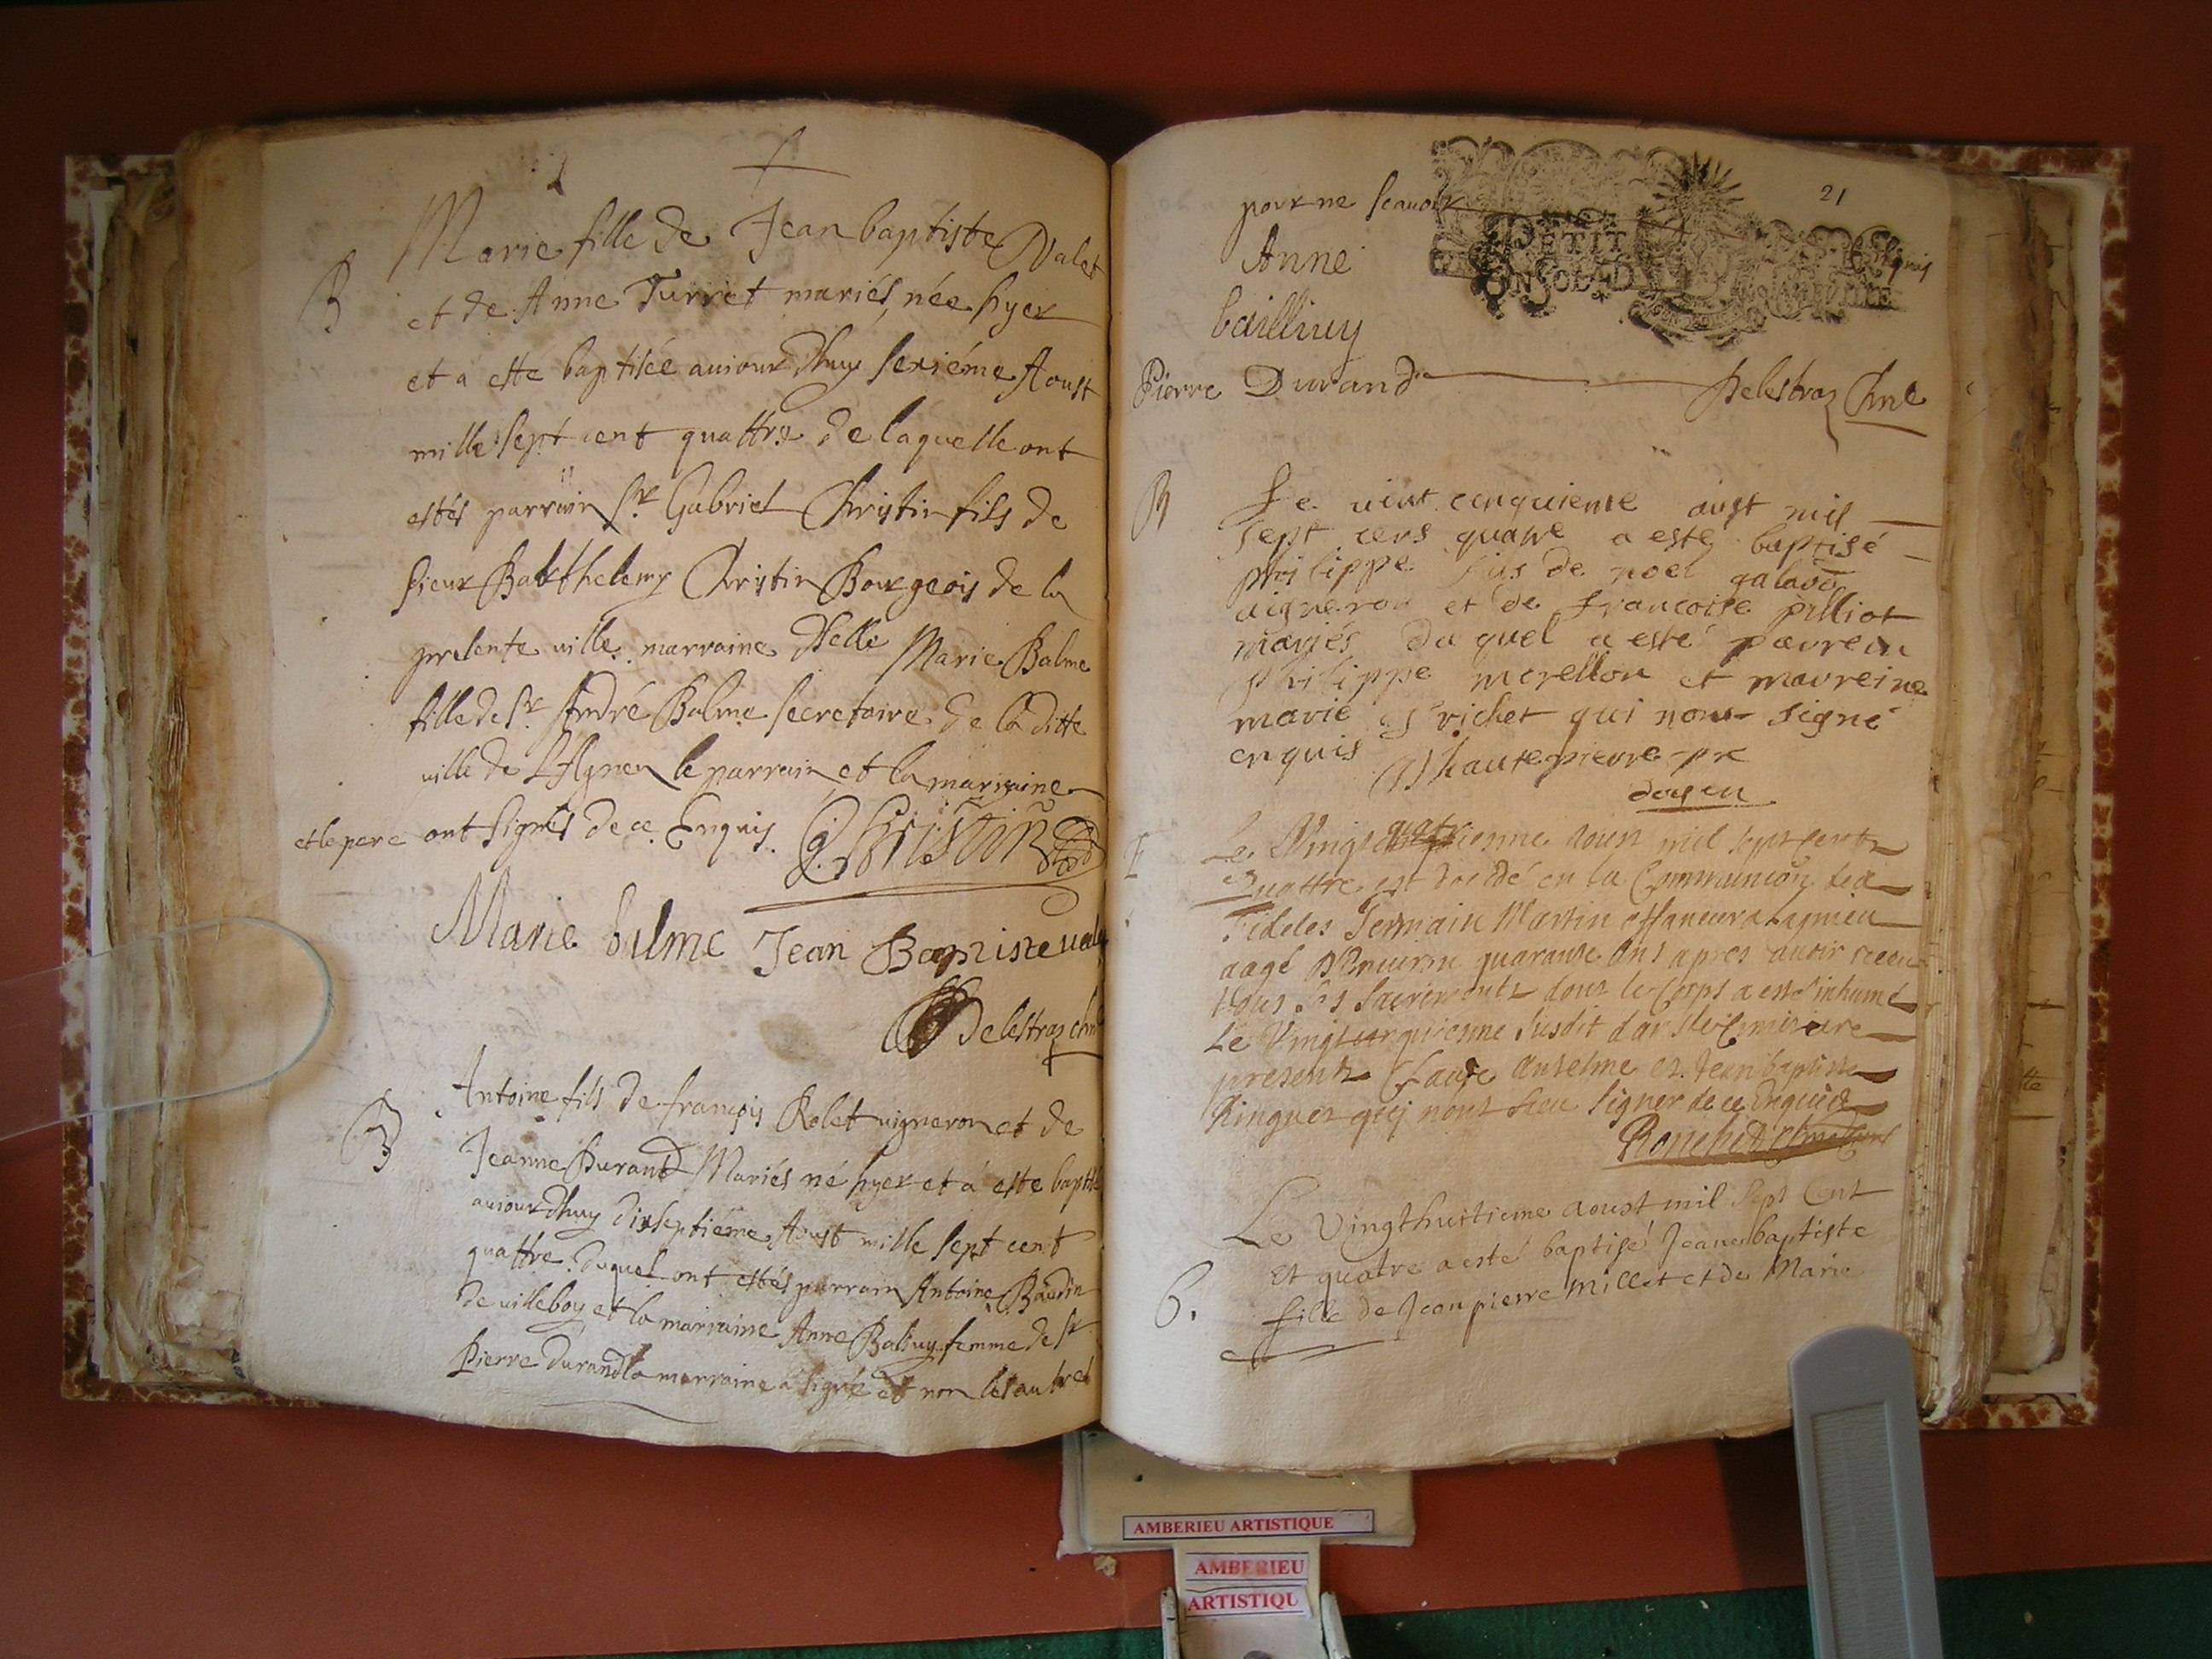 Marie fille de Jean baptiste Valet
B
et de Anne Turret mariés, née hyer
et a este baptisée auiourdhuy sexiéme Aoust
mille sept cent quattre de laquelle ont
estés parrain Sr Gabriel Christin fils de
sieur Barthelemy Christin Bourgeois de la
presente ville, marraine Delle Marie Balme
fille de Sr André Balme secretaire de la ditte
ville de Lagneu le parrain et la marraine
et le pere ont signés de ce Enquis. G. Christin
Marie balme Jean Baptiste valet
Delestraz
B
Antoine fils de françois Rolet uigneron et de
Jeanne Durand Mariés né hyer et a este baptisé
auiourdhuy dixseptiéme Aoust mille sept cent
quattre. duquel ont estés parrain Antoine Baudin
de villeboy et la marraine Anne Balluy femme de Sr
Pierre Durand la marraine a signé et non les autres
21
pour ne scauoir enquis
PETIT
Anne
bailliuy
Pierre Durand Delestraz
B
Le vint cinquieme aust mil
sept cens quatre a este baptisé
philippe fils de noel
vigneron et de francoise pilliot
mariés du quel a esté parrein
philippe merellon et marreine
marie richet qui nont signé
enquis hautepierre pre
doyen
E
Le Vingt ienne aoust mil sept cent
quattre est decedé en la Communion des
Fideles Germain Martin affaneur a Lagnieu
aagé D'Enuiron quarante ans apres auoir receu
tous les sacrements dont le Corps a esté inhumé
Le Vingtcinquienne susdit dans le Cimitiere
presents Claude Anselme et Jean baptiste
Ringuet quj nont sceu signer de ce Enquis
Le Vingthuitieme aoust mil Sept Cent
Et quatre a esté baptisé Jeanne baptiste
B.
fille de Jean pierre Millet et de Marie
AMBERIEU ARTISTIQUE
AMBERIEU
ARTISTIQU